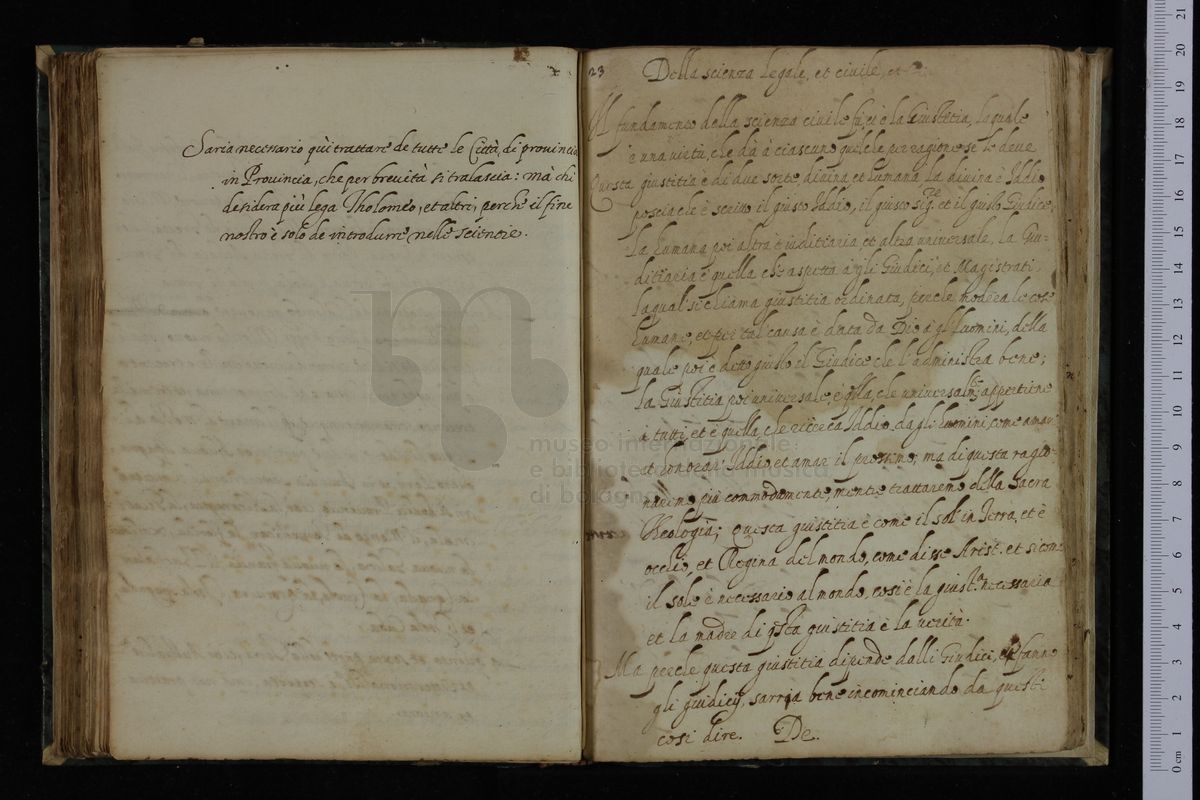 Saria necessario quì trattare de tutte le Città, di provincia
in Provincia, che per brevità si tralascia: mà chi
desidera più lega Tholomeo, et altri, perche il fine
nostro è solo de introdurre nelle scientie.
23
Della scienza legale, et civile, et
Il fundamento della scienza civile fu, et è la Giustitia, la quale
è una virtù, che dà à ciascuno quel che per ragione se le deve
Questa giustitia è di due sorte divina et humana, la divina è Iddio
poscia che è scritto il giusto Iddio, il giusto sig.re et il giusto Giudice,
la humana poi altra è iuditiaria, et altra universale, la Giu-
ditiaria è quella che aspetta à gli Giudici, et Magistrati,
la qual si chiama giustitia ordinata, perche modera le cose
humane, et per tal causa è data da Dio à gl'huomini, della
quale poi è detto giusto el Giudice che l'administra bene;
la Giustitia poi universale è q̃lla, che universalm.te appertiene
à tutti, et è quella che ricerca Iddio, da gli huomini, come amar
et honorar Iddio, et amar il prossimo, ma di questa ragio-
naremo più commodamente mentre trattaremo della Sacra
Theologia; Questa giustitia è come il sol' in Terra, et è
occhio, et Regina del mondo, come disse Arist. et si come
il sole è necessario al mondo, così è la giust.a necessaria
et la madre di q̃sta giustitia è la verità.
Ma perche questa giustitia dipende dalli Giudici, che fanno
gli giudicij, sarria bene incominciando da questi
così dire. De.
museo internazionale
e biblioteca della musica
di bologna
0 cm 1 2 3 4 5 6 7 8 9 10 11 12 13 14 15 16 17 18 19 20 21